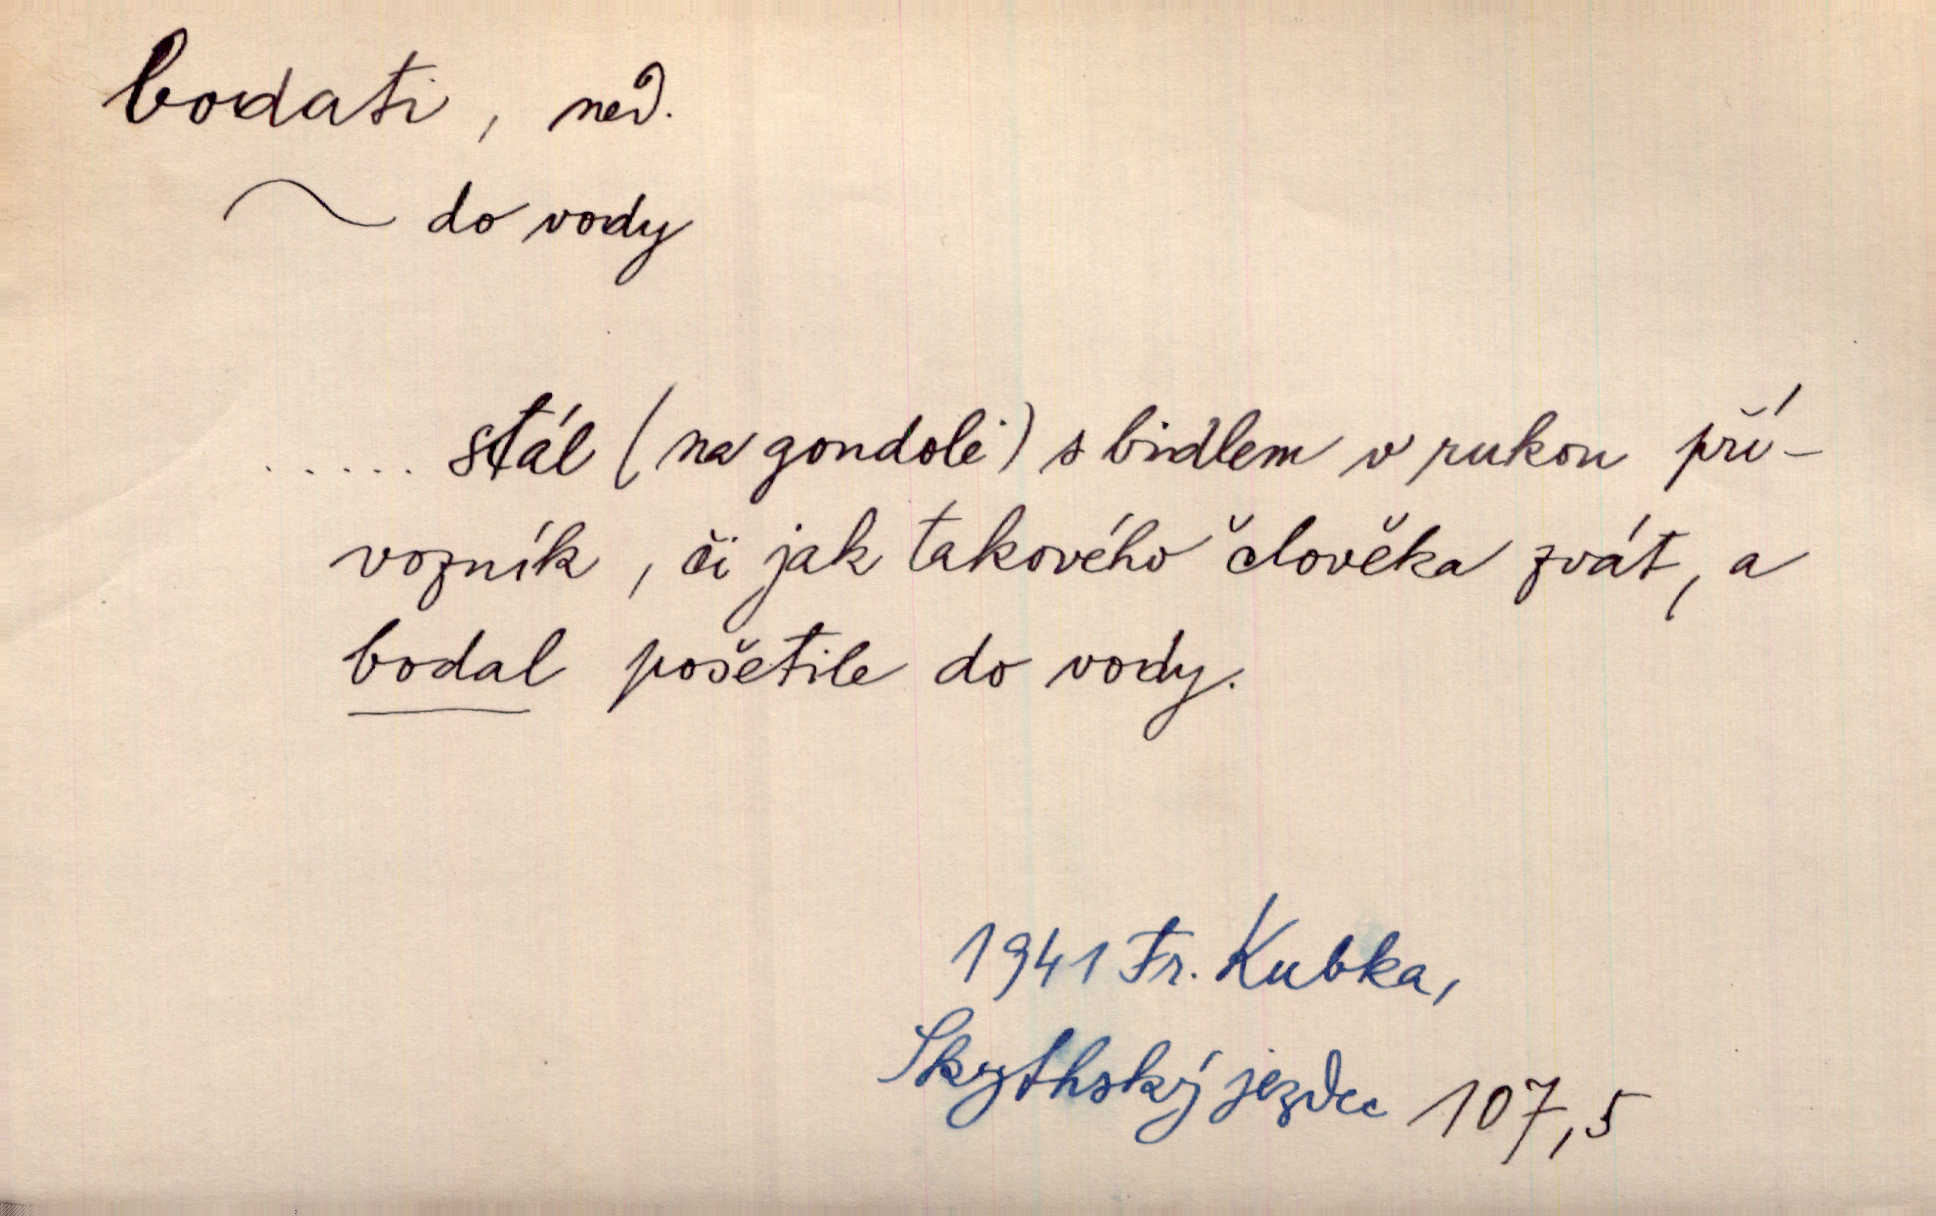 bodati, ned.
~ do vody
..... stál (na gondole) s bidlem v rukou pří-
vozník, či jak takového člověka zvát, a
bodal pošetile do vody.
1941 Fr. Kubka,
Skythský jezdec 107,5